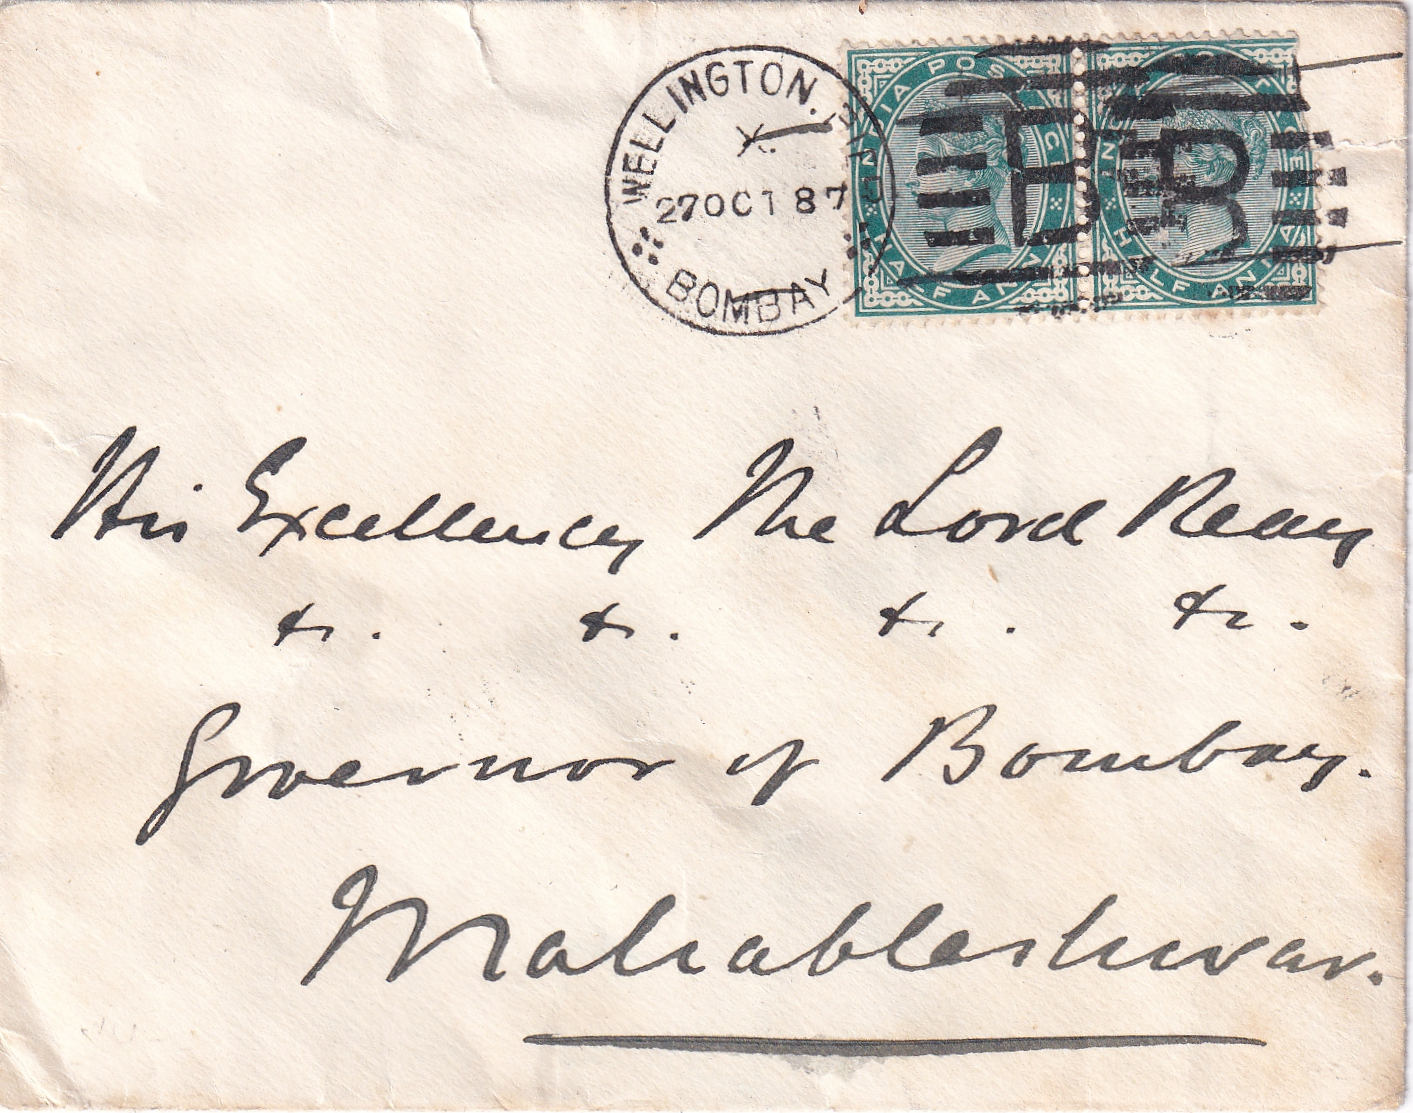 WELLINGTON.
27 OCT 87
BOMBAY
INDIA POSTAGE
HALF ANNA
INDIA POSTAGE
HALF ANNA
B
B
His Excellency The Lord Reay
&c. &c. &c. &c.
Governor of Bombay.
Mahableshwar.